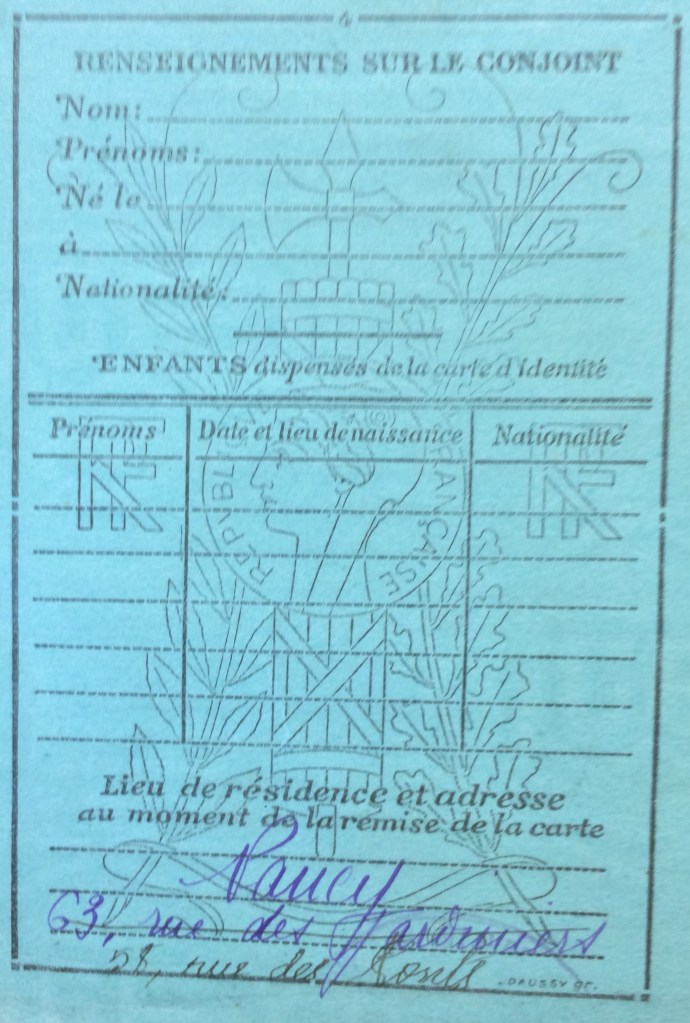 4
RENSEIGNEMENTS SUR LE CONJOINT
Nom:
Prénoms:
Né le
à
Nationalité:
ENFANTS dispensés de la carte d'identité
Prénoms Date et lieu de naissance Nationalité
RF RF
RÉPUBLIQUE FRANÇAISE
Lieu de résidence et adresse
au moment de la remise de la carte
Nancy
63, rue des Jardiniers
rue des Ponts
DAUSSY gr.